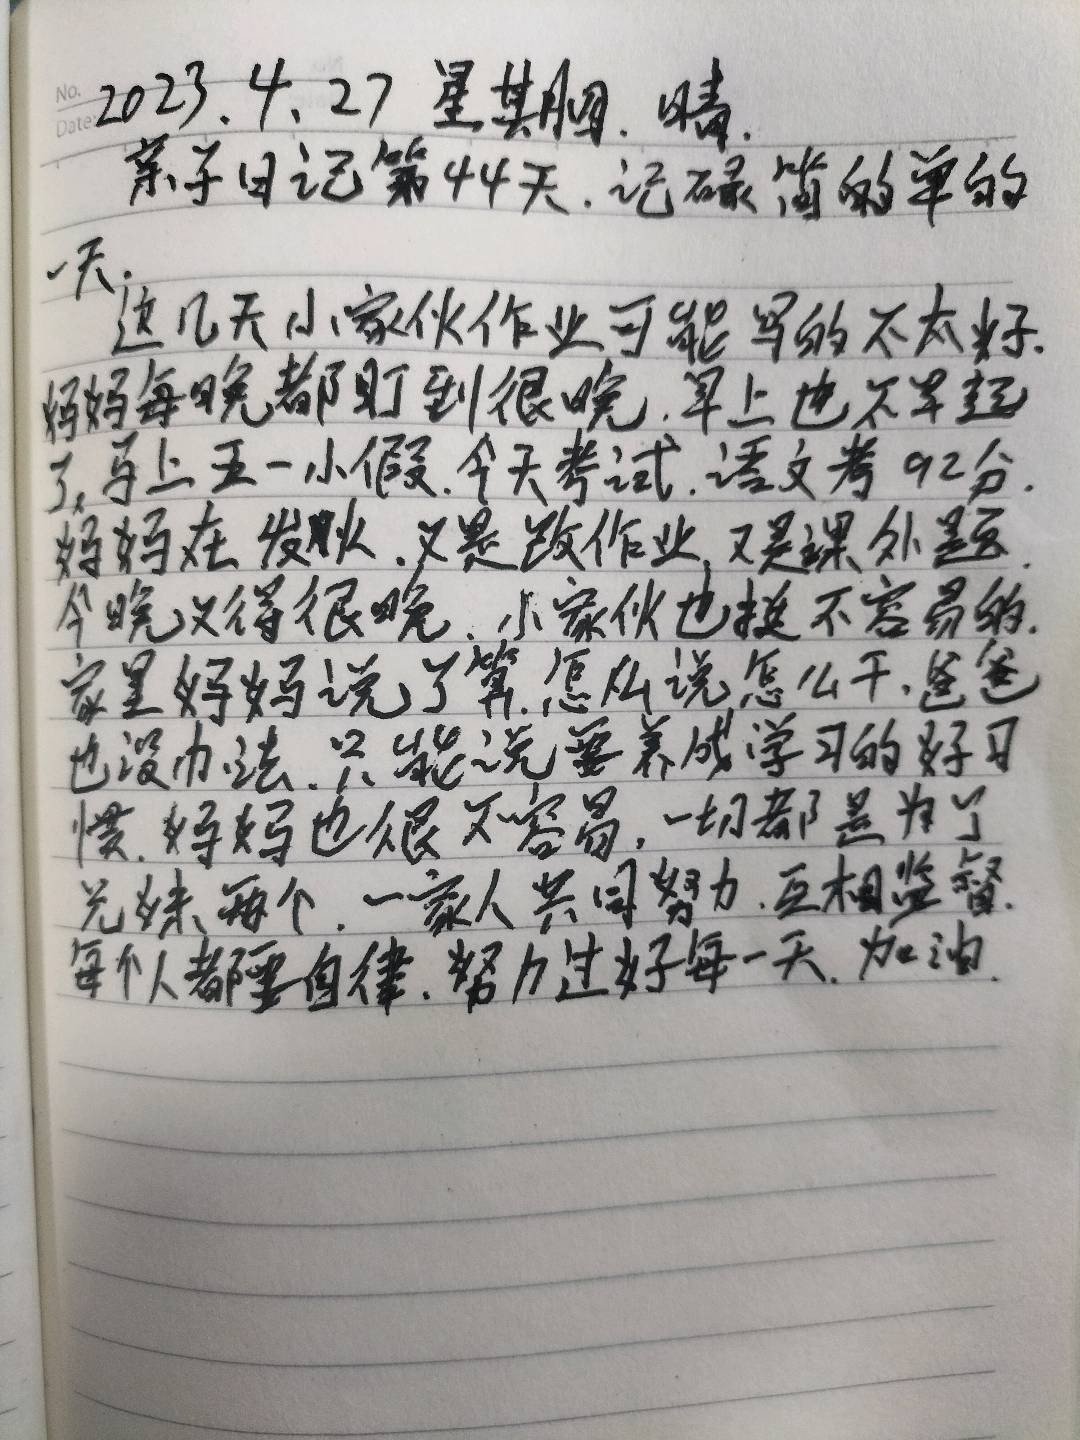 No.
Date:
2023.4.27 星期四.晴.
亲子日记第44天.记碌简的单的
一天.
这几天小家伙作业可能写的不太好.
妈妈每晚都盯到很晚.早上也不早起
了,马上五一小假.今天考试.语文考92分.
妈妈在发火.又是改作业,又是课外题.
今晚又得很晚.小家伙也挺不容易的.
家里妈妈说了算.怎么说怎么干.爸爸
也没办法.只能说要养成学习的好习
惯.妈妈也很不容易.一切都是为了
兄妹两个.一家人共同努力.互相监督.
每个人都要自律.努力过好每一天.加油.